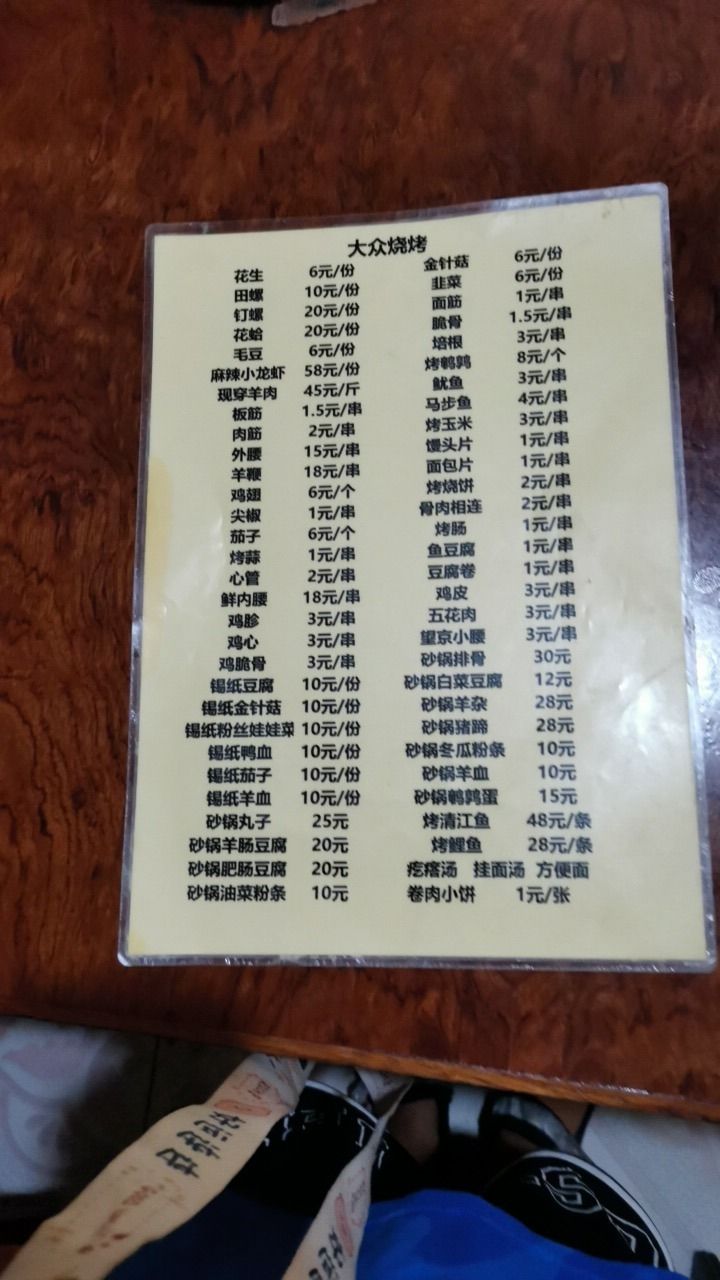 大众烧烤
花生 6元/份
田螺 10元/份
钉螺 20元/份
花蛤 20元/份
毛豆 6元/份
麻辣小龙虾 58元/份
现穿羊肉 45元/斤
板筋 1.5元/串
肉筋 2元/串
外腰 15元/串
羊鞭 18元/串
鸡翅 6元/个
尖椒 1元/串
茄子 6元/个
烤蒜 1元/串
心管 2元/串
鲜内腰 18元/串
鸡胗 3元/串
鸡心 3元/串
鸡脆骨 3元/串
锡纸豆腐 10元/份
锡纸金针菇 10元/份
锡纸粉丝娃娃菜 10元/份
锡纸鸭血 10元/份
锡纸茄子 10元/份
锡纸羊血 10元/份
砂锅丸子 25元
砂锅羊肠豆腐 20元
砂锅肥肠豆腐 20元
砂锅油菜粉条 10元
金针菇 6元/份
韭菜 6元/份
面筋 1元/串
脆骨 1.5元/串
培根 3元/串
烤鹌鹑 8元/个
鱿鱼 3元/串
马步鱼 4元/串
烤玉米 3元/串
馒头片 1元/串
面包片 1元/串
烤烧饼 2元/串
骨肉相连 2元/串
烤肠 1元/串
鱼豆腐 1元/串
豆腐卷 1元/串
鸡皮 3元/串
五花肉 3元/串
望京小腰 3元/串
砂锅排骨 30元
砂锅白菜豆腐 12元
砂锅羊杂 28元
砂锅猪蹄 28元
砂锅冬瓜粉条 10元
砂锅羊血 10元
砂锅鹌鹑蛋 15元
烤清江鱼 48元/条
烤鲤鱼 28元/条
疙瘩汤 挂面汤 方便面
卷肉小饼 1元/张